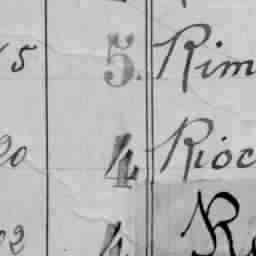 5 5. Rim
20 4 Rioc
02 4 R